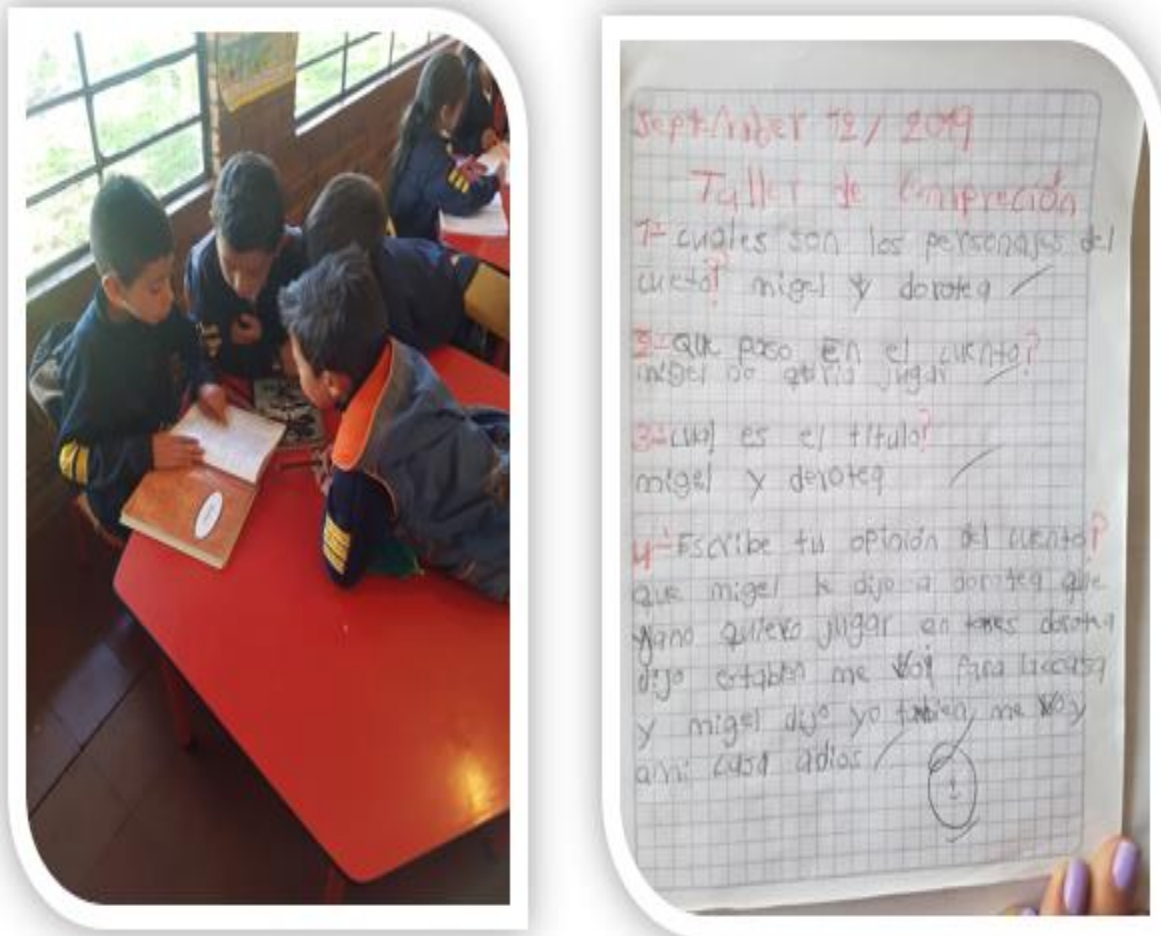 September 12 / 2019
Taller de Compreción
1- cuales son los personajes del
cueto? migel y dorotea
2- que paso en el cuento?
migel no qeria jugar
3- cual es el titulo?
migel y dorotea
4- Escribe tu opinión del cuento?
que migel le dijo a dorotea que
yano quiero jugar en tonses dorotea
dijo estabien me voy para lacasa
y migel dijo yo tabien me voy
ami casa adios